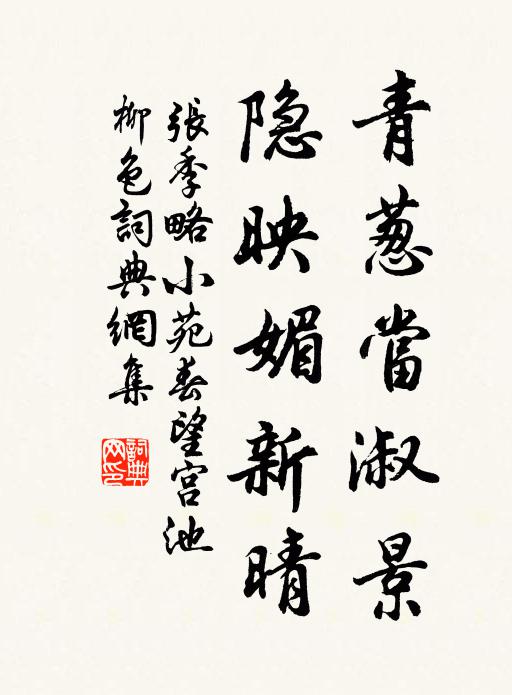 青葱當淑景
隐映媚新晴
張季略小苑春望宫池
柳色詞典網集
詞典
网印